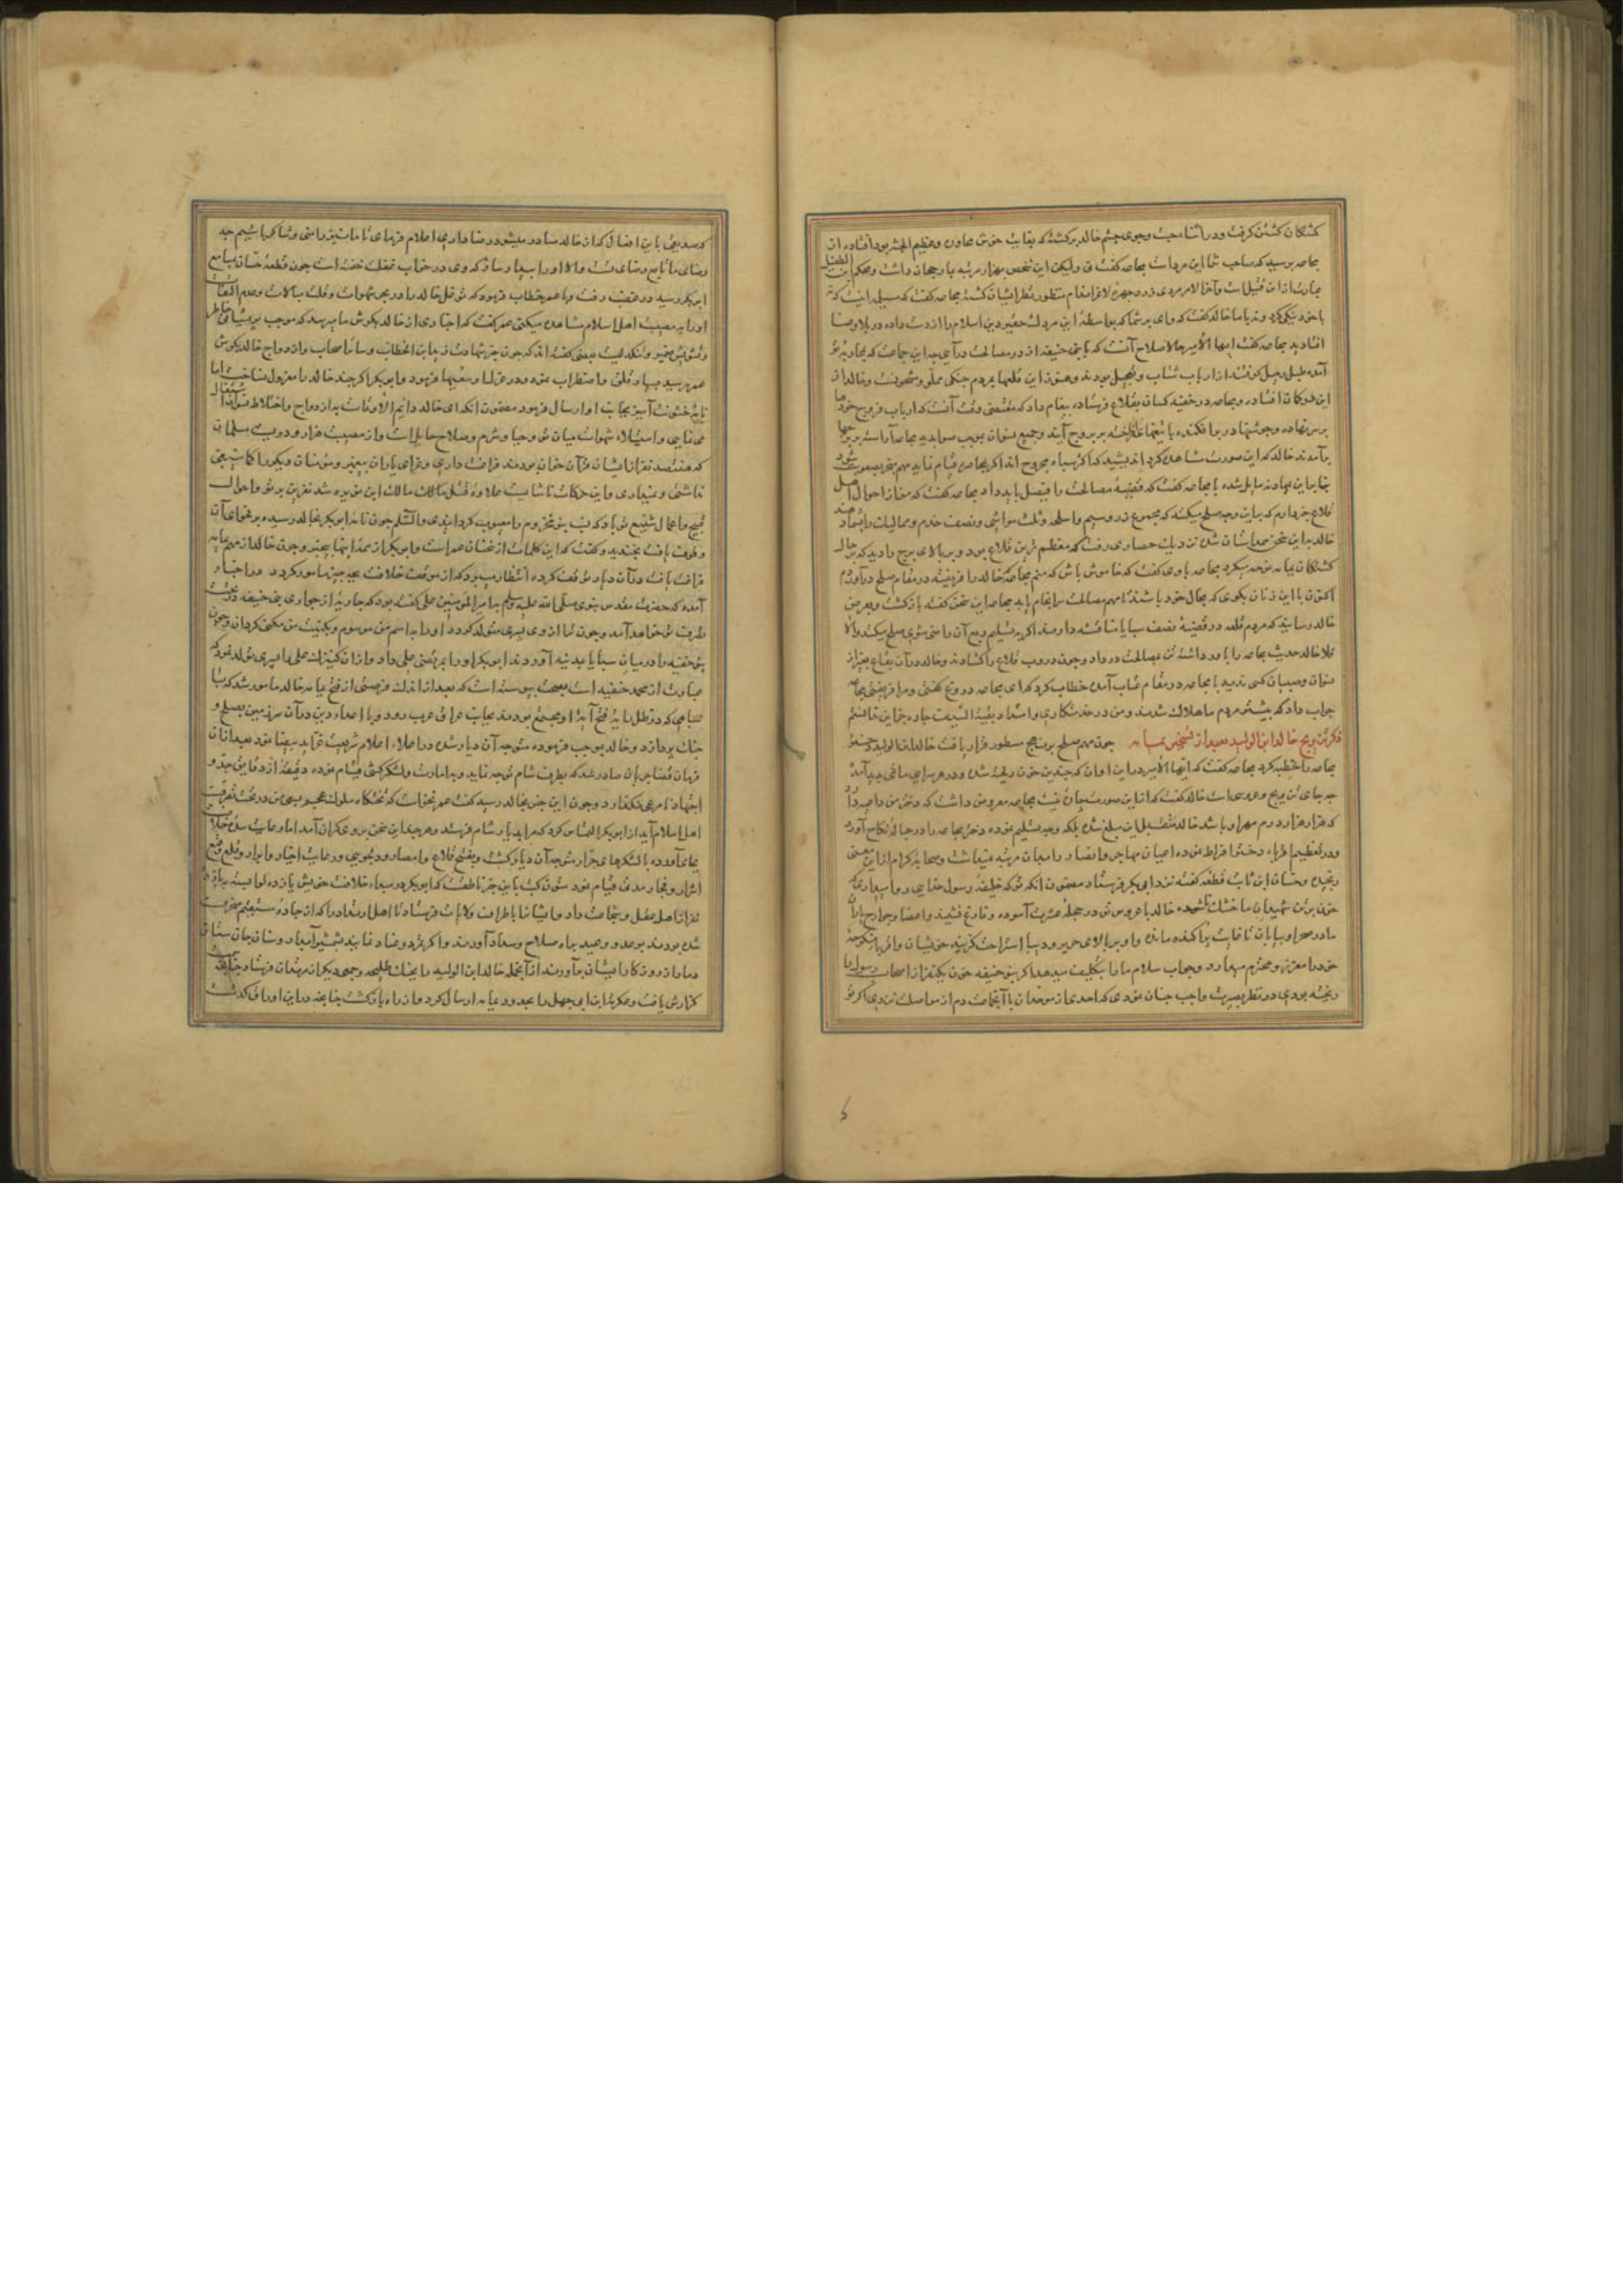 کشتکان کشتن کرفت و در اثناء جست و جوی چشم خالد بر کشته که بغایت خوش و عظیم الجثه بود افتاده از
مجاعه پرسید که صاحب شما این مرد است مجاعه کفت این شخص بهزار مرتبه بارجحان داشت و محکم ابن الطفیل
عبارت از این قتیل است و آخر الامر مردی زرد چهره لاغر اندام منظور نظر ایشان کشته مجاعه کفت که مسیلمه اینست که
با خود نیکی کرد و نه با ما خالد کفت که وای بر شما که بواسطهٔ این مردک حقیر دین اسلام را از دست داده در بلا و عنا
افتادید مجاعه کفت ایها الامیر حالا صلاح آنست که با بنی حنیفه از در مصالحت درآیی چه این جماعت که بمحاربهٔ تو
آمده از ارباب شتاب و تعجیل بودند و هنوز این قلعها بمردم جنکی مملو و مشحونست و خالد از
این در و مجاعه در خفیه کسان بقلاع فرستاده پیغام داد که مقتضی وقت آنست که ارباب فروج خودها
بر سر نهاده و جوشنها در بر افکنده با تیغها بر بروج آیند و جمیع نسوان بموجب صوابدید مجاعه آراسته بر برجها
برآمدند خالد که این صورت مشاهده کرد اندیشید که اکثر سپاه مجروح اند اکر بمحاصره قیام نماید مهم بصعوبت شود
بنابراین بمهادنه مایل شده با مجاعه کفت که قضیهٔ مصالحت را فیصل باید داد مجاعه کفت که من از احوال اهل
قلاع خبر دارم که براین وجه صلح میکنند که مجموع زر و سیم و اسلحه و ثلث مواشی و نصف خدم و ممالیک را بشما دهند
خالد براین سخن همداستان شده نزدیک حصاری رفت که معظم ترین قلاع بود و بر بالای برج زنی را دید که بر حال
کشتکان یمامه نوحه میکرد مجاعه با وی کفت که خاموش باش که منم مجاعه که خالد را فریفته در مقام صلح درآوردم
اکنون با این زنان بکوی که بحال خود باشند تا مهم مصالحت سرانجام یابد مجاعه این سخن کفته بازکشت و بعرض
خالد رسانید که مردم قلعه در قضیهٔ نصف سبایا مناقشه دارند اکر بتسلیم ربع آن راضی شوی صلح میکنند والا
فلا خالد حدیث مجاعه را باور داشته تن بمصالحت در داد و چون دروب قلاع را کشادند و خالد در آن بقاع بغیر از
نسوان و صبیان کسی ندید با مجاعه در مقام عتاب آمده خطاب کرد که ای مجاعه دروغ کفتی و مرا فریفتی مجاعه
جواب داد که بیشتر مردم ما هلاک شدند و من در خدمتکاری و استعداد بقیة السیف چاره جز این ندانستم
ذکر تزویج خالد ابن الولید بعد از تسخیر یمامه چون مهم صلح بر منهج مسطور قرار یافت خالد ابن الولید دختر
مجاعه را خطبه کرد مجاعه کفت که ایها الامیر در این اوان که چندین خون ریخته شده و در هر سرایی ماتمی پدید آمده
چه جای تزویج و عروسی است خالد کفت که از این صورت چاره نیست مجاعه معروض داشت که دختر من را میرود
که هزار هزار درم مهر او باشد خالد متقبل این مبلغ شده بلکه وجه تسلیم نموده دختر مجاعه را در حبالهٔ نکاح آورد
و در تعظیم اقرباء دختر افراط نموده اعیان مهاجر و انصار را بدان مرتبه نمیداشت و صحابهٔ کرام از این معنی
رنجیده و حسان ابن ثابت قطعه کفته نزد ابی بکر فرستاد مضمون آنکه تو که خلیفهٔ رسول خدایی روا میداری که
خون بر تن شهیدان ما خشک ناشده خالد با عروس نو در حجلهٔ عشرت آسوده و فارغ نشیند و اعضا و جوارح یاران
ما در صحرا و بیابان تا غایت پراکنده مانده و او بر بالای حریر و دیبا استراحت کزیند خویشان و اقرباء منکوحهٔ
خود را معزز و محترم میدارد و جواب سلام ما را بتکلیف میدهد اکر بنو حنیفه خون یکنفر از اصحاب رسول را
ریخته بودی در نظر بصیرت واجب چنان نمودی که احدی از موحدان با آنجماعت دم از مواصلت نزدی اکر تو
که صدیقی باین افعال که از خالد صادر میشود رضا داری اعلام فرمای تا ما نیز راضی و شاکر باشیم چه
رضای ما تابع رضای تست والا او را بیدار ساز که وی در خواب غفلت خفته است چون قطعهٔ حسان بمسامع
ابی بکر رسید در غضب رفت و با عمر خطاب فرمود که توغل خالد را در بحر شهوات و قلت مبالات و عدم التفات
او را به مصیبت اهل اسلام مشاهده میکنی عمر کفت که اخباری از خالد بکوش ما میرسد که موجب پریشانی خاطر
و تشویش ضمیر و تنکدلیست بعضی کفته اند که چون خبر شهادت زید ابن الخطاب و سائر اصحاب و ازدواج خالد بکوش
عمر رسید بسیار قلق و اضطراب نمود و در عزل او سعیها فرمود و ابوبکر اکر چند خالد را معزول نساخت اما
نامهٔ خشونت آمیز بجانب او ارسال فرمود مضمون آنکه ای خالد دائم الاوقات به ازدواج و اختلاط نسوان اشتغال
می نمایی و استیلاء شهوات میان تو و حیا و شرم و صلاح حایل است و از مصیبت هزار و دویست مسلمان
که هفتصد نفر از ایشان قرآن خوان بودند فراغت داری و عزای یاران پیغمبر و مؤمنان دیکر را کان لم یکن
می شمری و این حرکات ناشایست علاوهٔ قتل مالک این نویره شد نفرین بر تو و احوال
قبیح و اعمال شنیع تو باد که نسب بنو مخزوم را معیوب کردانیدی والسلام چون نامه ابوبکر بخالد رسید و بر فحوای آن
وقوف یافت بخندید و کفت که این کلمات از سخنان عمر است و ابوبکر از اینها بیخبر و چون خالد از مهم یمامه
فراغت یافت در آن دیار توقف کرده انتظار میبرد که از موقف خلافت بچه چیز مامور کردد در اخبار
آمده که حضرت مقدس نبوی صلی الله علیه وسلم با امیر المؤمنین علی کفته بود که جاریهٔ از جواری بنی حنیفه در تحت
تصرف تو خواهد آمد و چون ترا از وی پسری متولد کردد او را به اسم من موسوم و بکنیت من مکنی کردان و چون
بنو حنیفه را در میان سبایا بمدینه آوردند ابوبکر او را بمرتضی علی داد و از آن کنیزک علی را پسری تولد نمود که
عبارت از محمد حنفیه است بصحت پیوسته است که بعد از اندک فرصتی از فتح یمامه خالد مامور شد که با
سپاهی که در ظل رایهٔ فتح آیهٔ او مجتمع بودند بجانب عراق عرب رود و با اعداء دین در آن سرزمین بصلح و
جنک پردازد و خالد بموجب فرموده متوجه آن دیار شده در اعلاء اعلام شریعت غرا ید بیضا نمود بعد از آن
فرمان قضا جریان صادر شد که بطرف شام توجه نماید و به امارت و لشکرکشی قیام نموده دقیقهٔ از دقایق جد و
اجتهاد نامرعی نکذارد و چون این خبر بخالد رسید کفت عمر نخواست که تختکاه ملوک عجم بسعی من در تحت تصرف
اهل اسلام آید از ابوبکر التماس کرد که مرا بدیار شام فرستد و هر چند این سخن بر وی کران آمد اما رعایت
بجای آورده با لشکرهای جرار متوجه آن دیار کشت و بفتح قلاع و امصار و دلجویی و رعایت اخیار و ابرار و قلع و قمع
اشرار و فجار مدتی قیام نمود متون کتب باین خبر ناطقست که ابوبکر در مبداء خلافت خویش یازده لوا بسته به یازده
نفر از اهل عقل و شجاعت داد و ایشانرا باطراف ولایات فرستاد تا اهل ارتداد را که از جادهٔ مستقیم منحرف
شده بودند بوعد و وعید براه صلاح و سداد آورند و اکر تمرد و عناد نمایند بشمشیر آبدار و سنان جان ستان
دمار از روزکار ایشان برآورند از آنجمله خالد ابن الولید را بجنک طلیحه و جمعی دیکر از مرتدان فرستاد چنانچه
کزارش یافت و عکرمة ابن ابی جهل را بحدود یمامه ارسال کرد و از راه بازکشت چنانچه در این اوراق کذشت